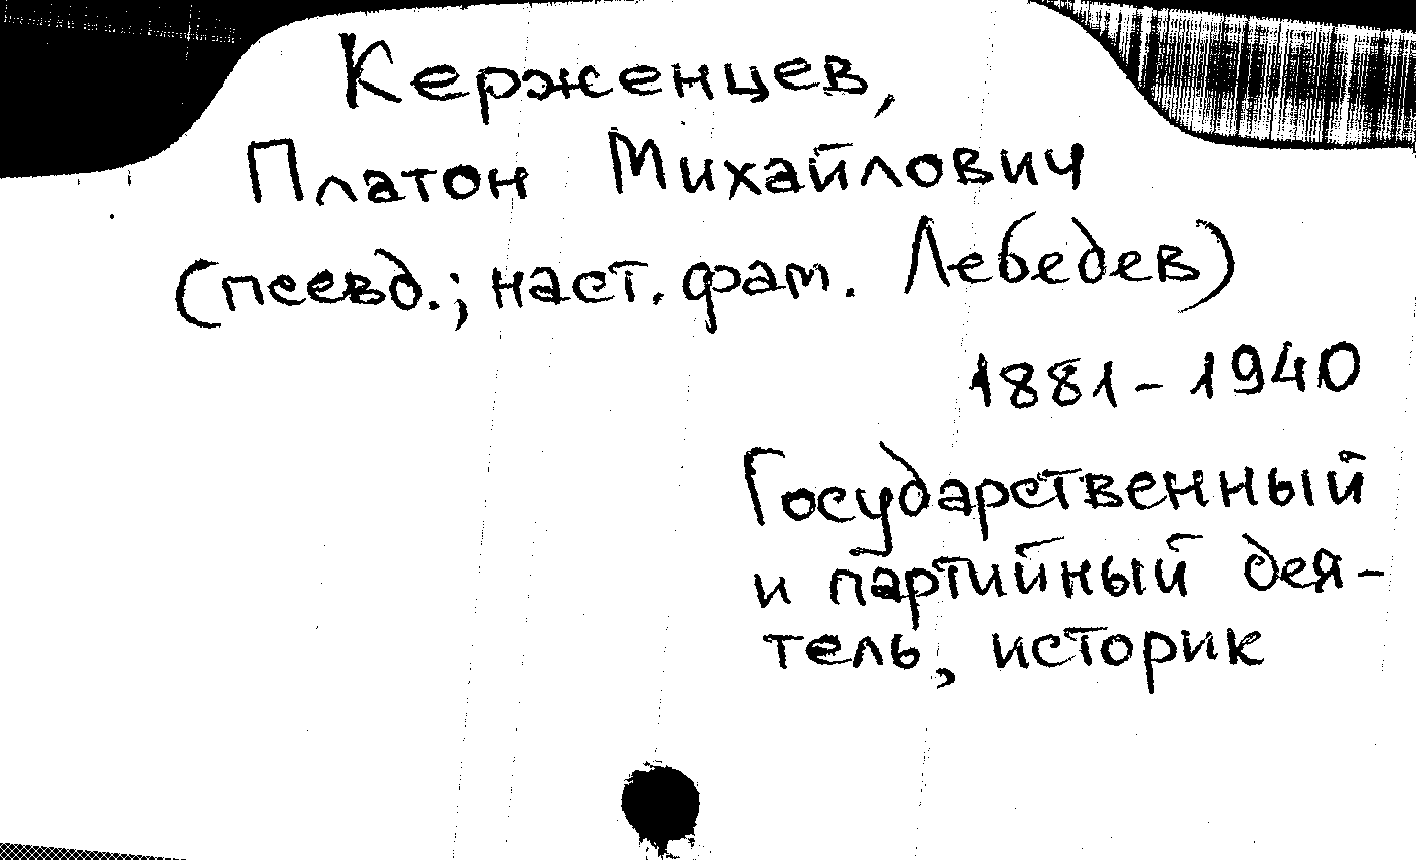 Керженцев,
Платон Михайлович
(псевд.; наст. фам. Лебедев)
1881-1940
Государственный
и партийный дея-
тель, историк